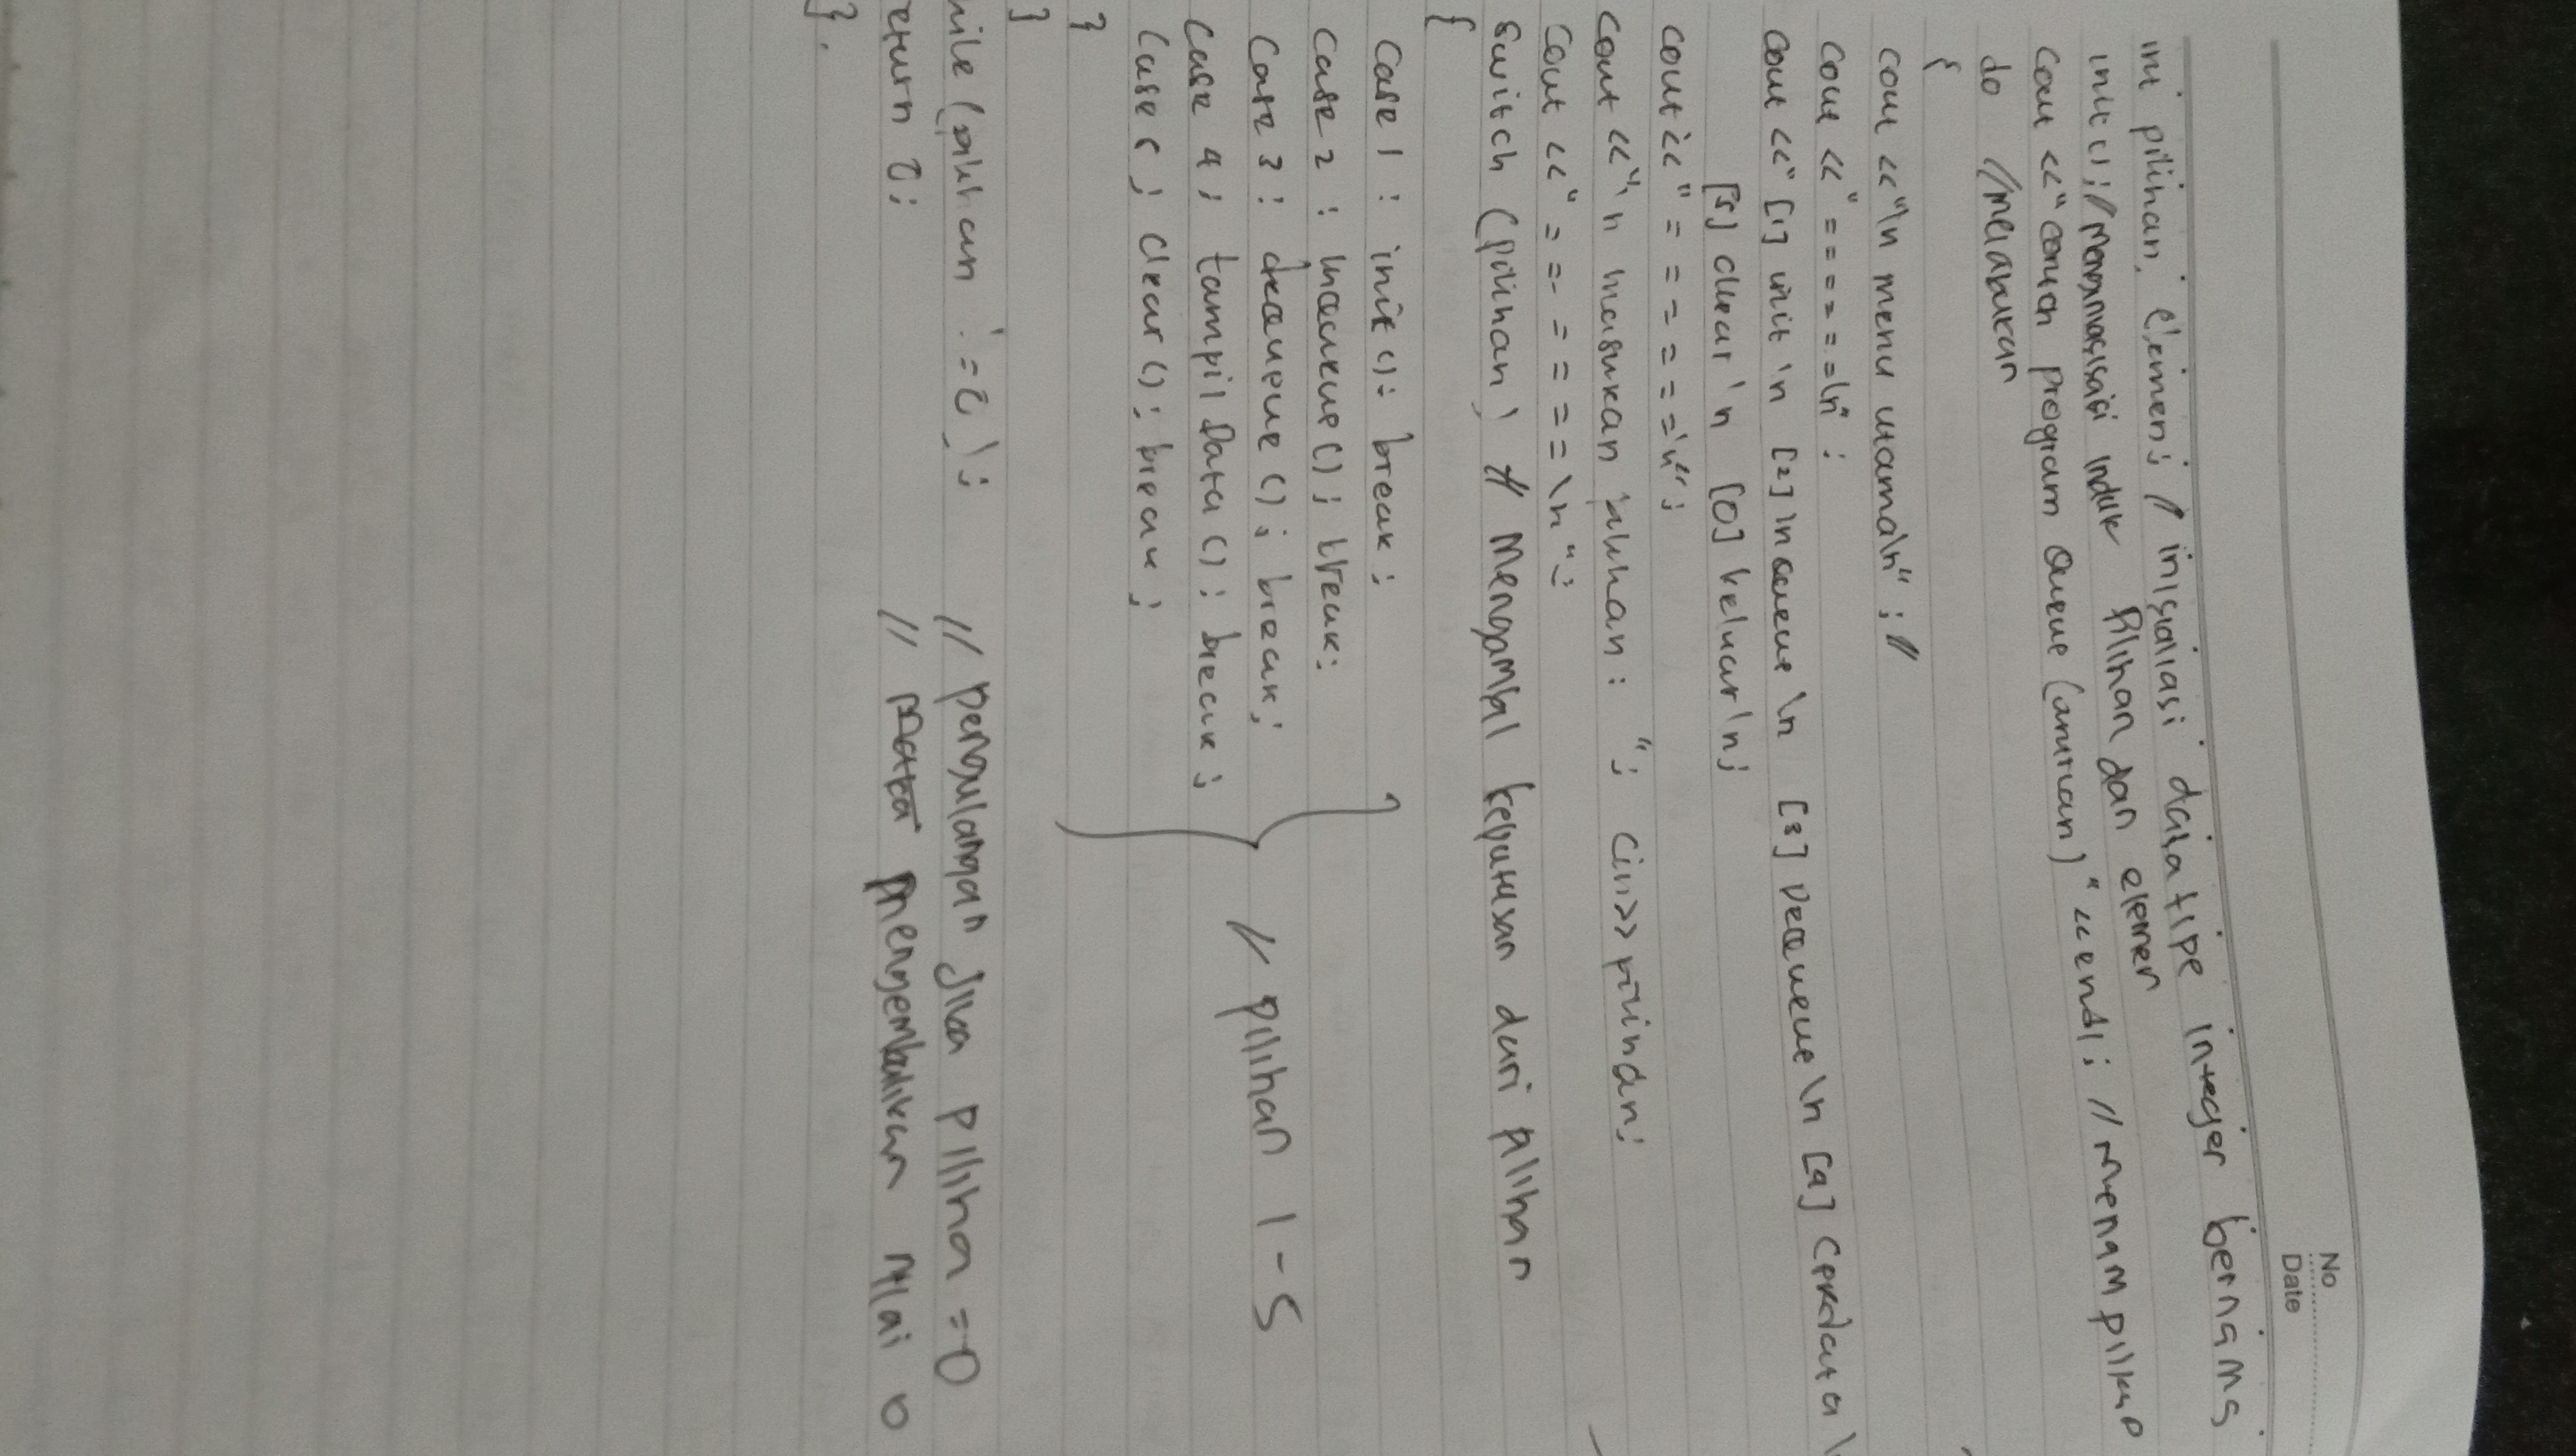 No
Date
int pilihan, elemen; // inisialiasi data tipe integer bernama
init(); // Menginisialisasi Induk Pilihan dan elemen
Cout << "contoh program Queue (antrian)" << endl; // Menampilkan
do //melakukan
{
cout << "\n menu utama\n" ; //
cout << "======\n" ;
cout << "[1] init \n [2] Inqueue \n [3] Dequeue \n [4] Cekdata \
[5] clear \n [0] keluar \n;
cout << "======\n";
cout << "\n masukan pilihan : "; cin>> pilihan;
cout << "=======\n";
switch (pilihan) // Mengambil keputusan dari pilihan
{
Case 1 : init(); break;
Case 2 : inqueue(); break;
Case 3 : dequeue(); break;
Case 4 ; tampilData(); break;
Case 5 ; clear(); break;
// pilihan 1 - 5
}
}
hile (pilihan != 0); // pengulangan jika piliha =0
eturn 0; // mengembalikan nilai 0
}.